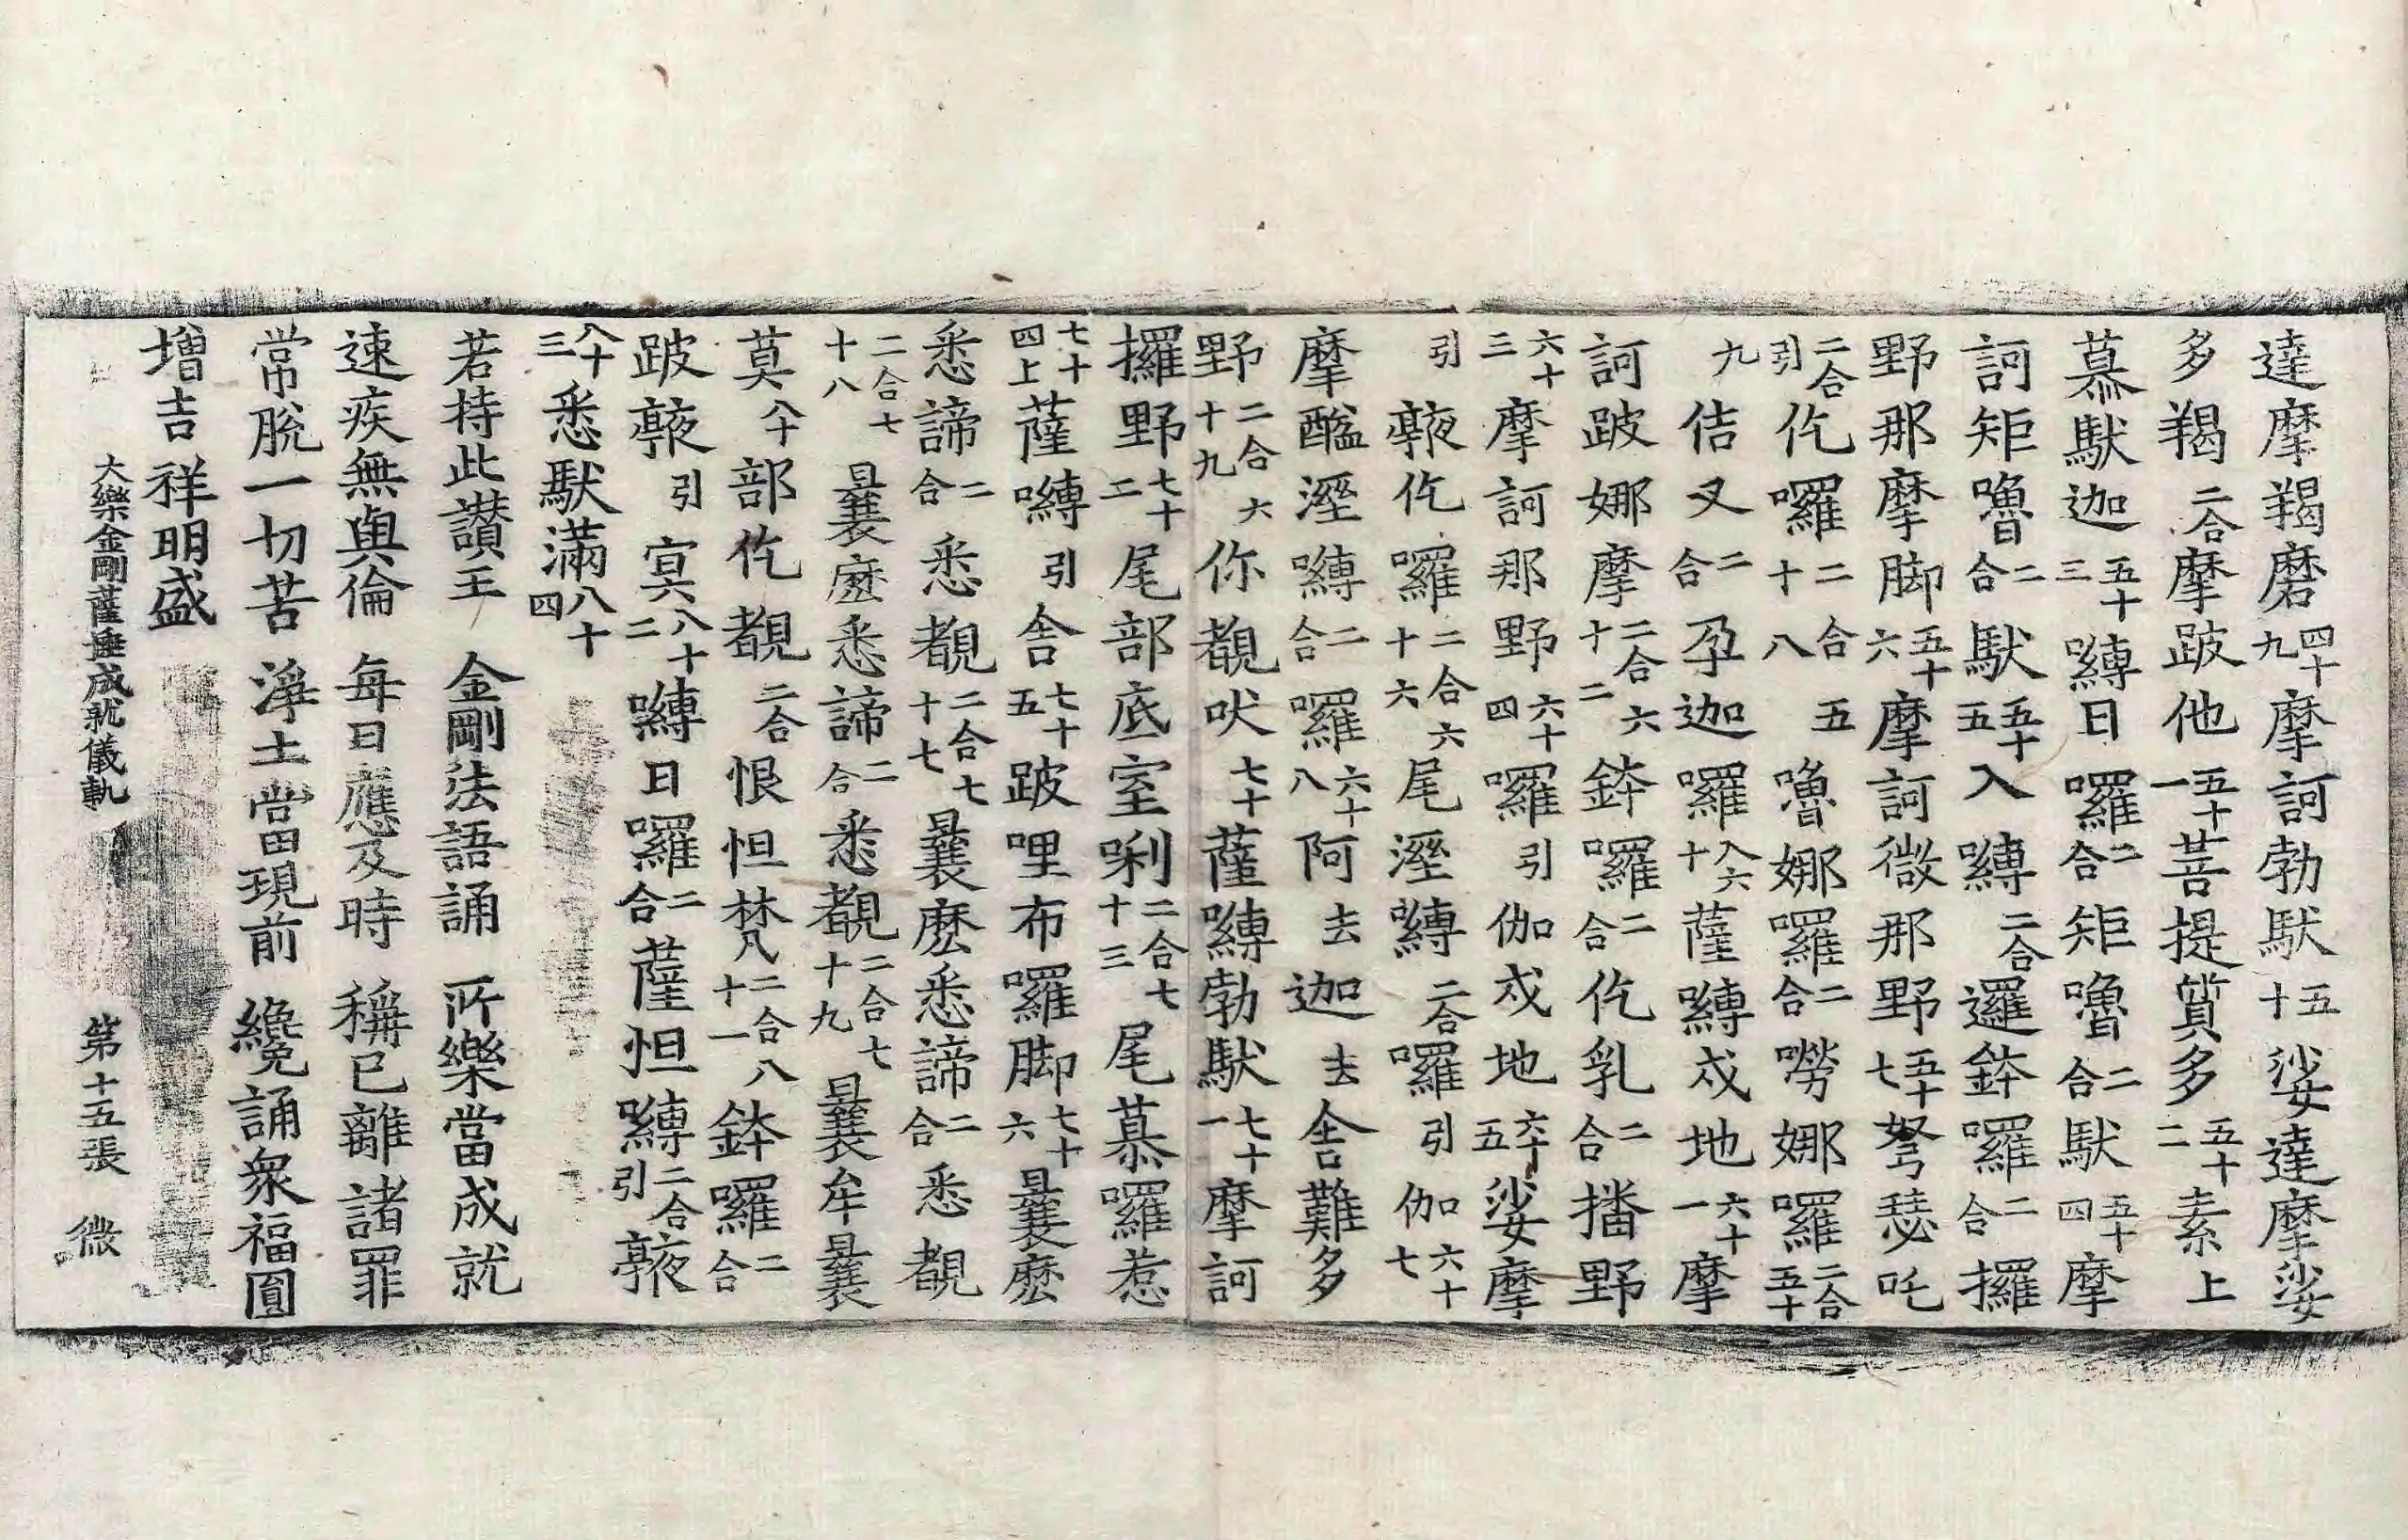 達摩羯磨四十九摩訶勃馱五十娑達摩娑
多羯二合摩跛他五十一菩提質多五十二素上
慕馱迦五十三嚩日囉二合矩嚕二合馱五十四摩
訶矩嚕二合馱五十五入嚩二合邏鉢囉二合攞
野那摩脚五十六摩訶微那野五十七弩瑟吒
二合引仡囉二合五十八嚕娜囉二合嘮娜囉二合五十
九佶叉二合孕迦囉八六十薩嚩戍地六十一摩
訶跛娜摩二合六十二鉢囉二合仡乳二合播野
六十三摩訶那野六十四囉引伽戍地六十五娑摩
引㗨仡囉二合六十六尾溼嚩二合囉引伽六十七
摩醯溼嚩二合囉六十八阿去迦去舍難多
野二合六十九你覩吠七十薩嚩勃馱七十一摩訶
攞野七十二尾部底室唎二合七十三尾慕囉惹
七十四上薩嚩引舍七十五跛哩布囉脚七十六曩麽
悉諦二合悉覩二合七十七曩麽悉諦二合悉覩
二合七十八曩麽悉諦二合悉覩二合七十九曩牟曩
莫八十部仡覩二合恨怛梵二合八十一鉢囉二合
跛㗨引寞八十二嚩日囉二合薩怛嚩二合引㗨
八十三悉馱滿八十四
若持此讚王　金剛法語誦　所樂當成就
速疾無與倫　每日應及時　稱已離諸罪
常脫一切苦　淨土當現前　纔誦衆福圓
增吉祥明盛
大樂金剛薩埵成就儀軌　第十五張　微